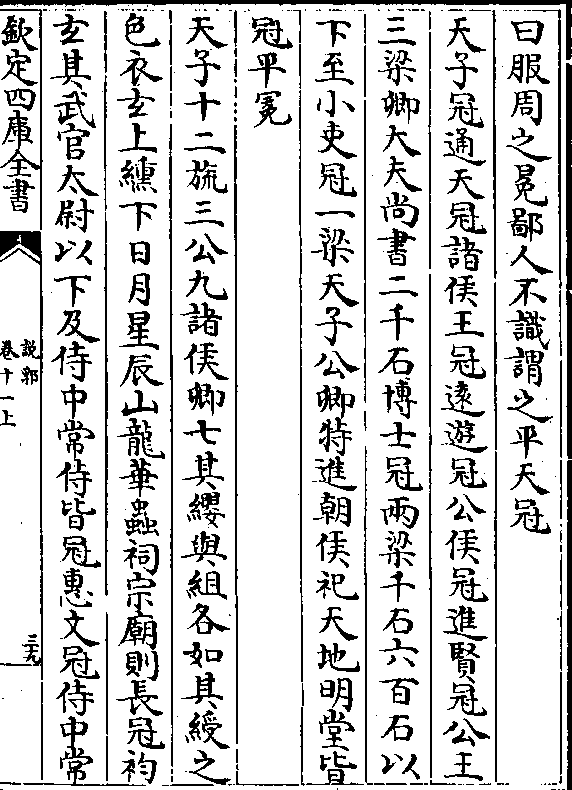 曰服周之冕鄙人不識謂之平天冠
天子冠通天冠諸侯王冠逺遊冠公侯冠進賢冠公王
三梁卿大夫尚書二千石博士冠兩梁千石六百石以
下至小吏冠一梁天子公卿特進朝侯祀天地明堂皆
冠平冕
天子十二旒三公九諸侯卿七其纓與組各如其綬之
色衣𤣥上纁下日月星辰山龍華蟲祠宗廟則長冠袀
𤣥其武官太尉以下及侍中常侍皆冠惠文冠侍中常
欽定四庫全書
說郛
卷十一上
三九